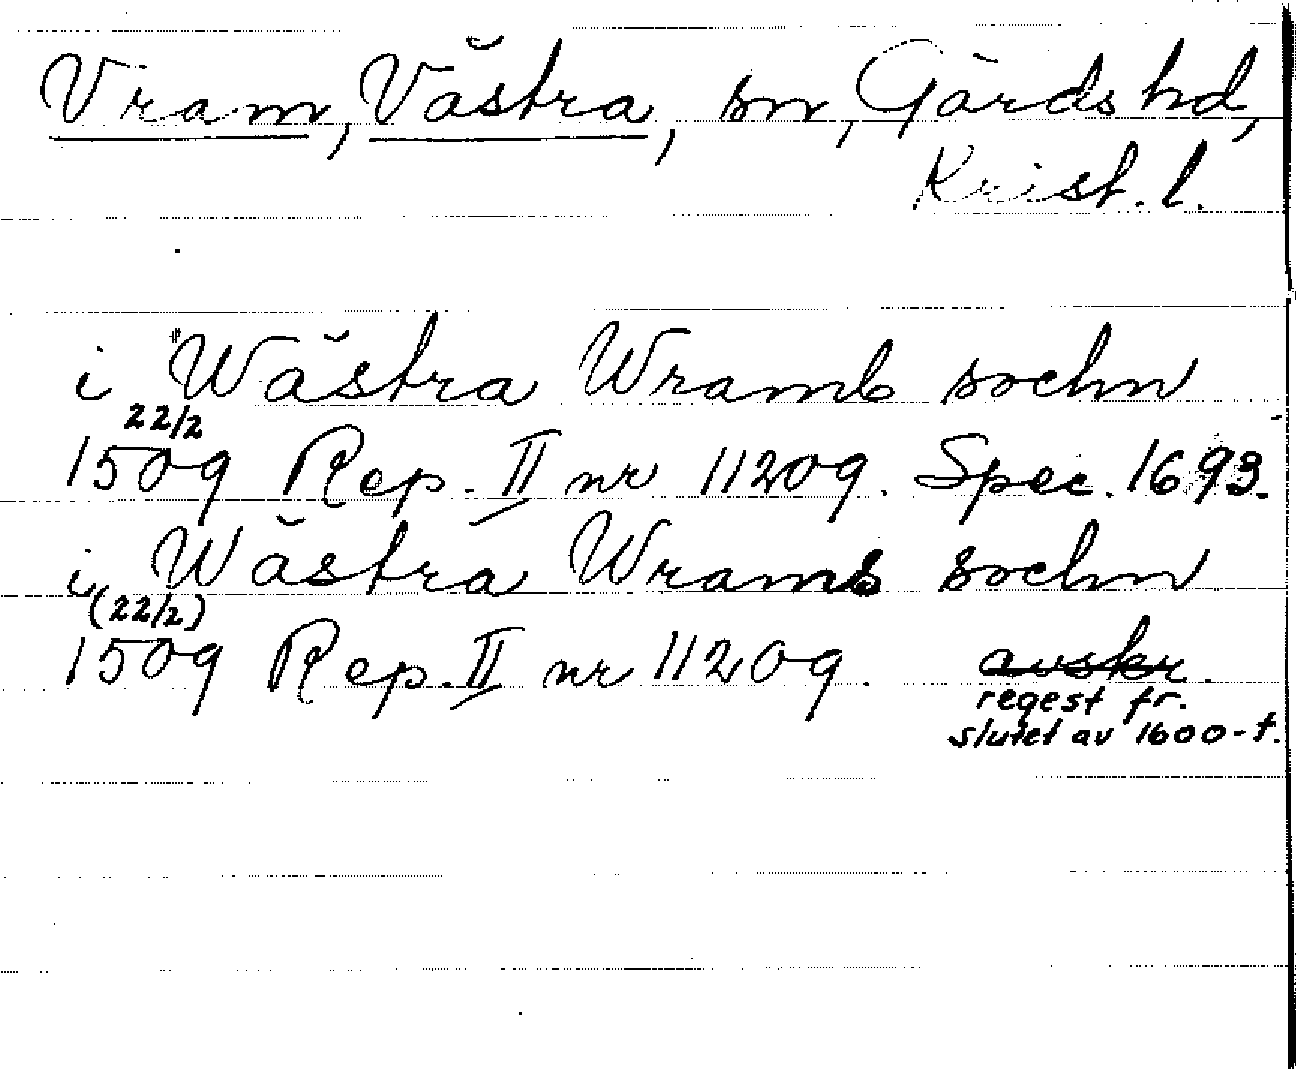 Vram, Västra, sn, Gärds hd,
Krist. l.
i "Wästra Wramb sochn
22/2
1509 Rep. II nr 11209. Spec. 1693.
i Wästra Wrams sochn
(22/2)
1509 Rep. II nr 11209. avskr.
regest fr.
slutet av 1600-t.